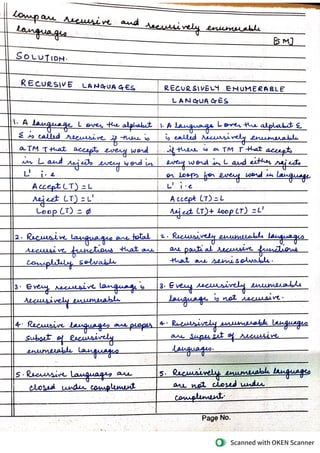 Compare recursive and recursively enumerable
languages.
[5M]
SOLUTION:
RECURSIVE LANGUAGES
RECURSIVELY ENUMERABLE
LANGUAGES
1. A language L over the alphabet
Σ is called recursive if there is
a TM T that accepts every word
in L and rejects every word in
L' i.e
Accept (T) = L
reject (T) = L'
Loop (T) = ø
1. A language L over the alphabet Σ
is called recursively enumerable
if there is a TM T that accepts
every word in L and either rejects
or loops for every word in language
L' i.e
Accept (T) = L
reject (T) + loop (T) = L'
2. Recursive languages are total
recursive functions that are
completely solvable.
2. Recursively enumerable languages
are partial recursive functions
that are semisolvable.
3. Every recursive language is
recursively enumerable
3. Every recursively enumerable
language is not recursive.
4. Recursive languages are proper
subset of Recursively
enumerable languages
4. Recursively enumerable languages
are superset of recursive
languages.
5. Recursive languages are
closed under complement
5. Recursively enumerable languages
are not closed under
complement.
Page No.
Scanned with OKEN Scanner